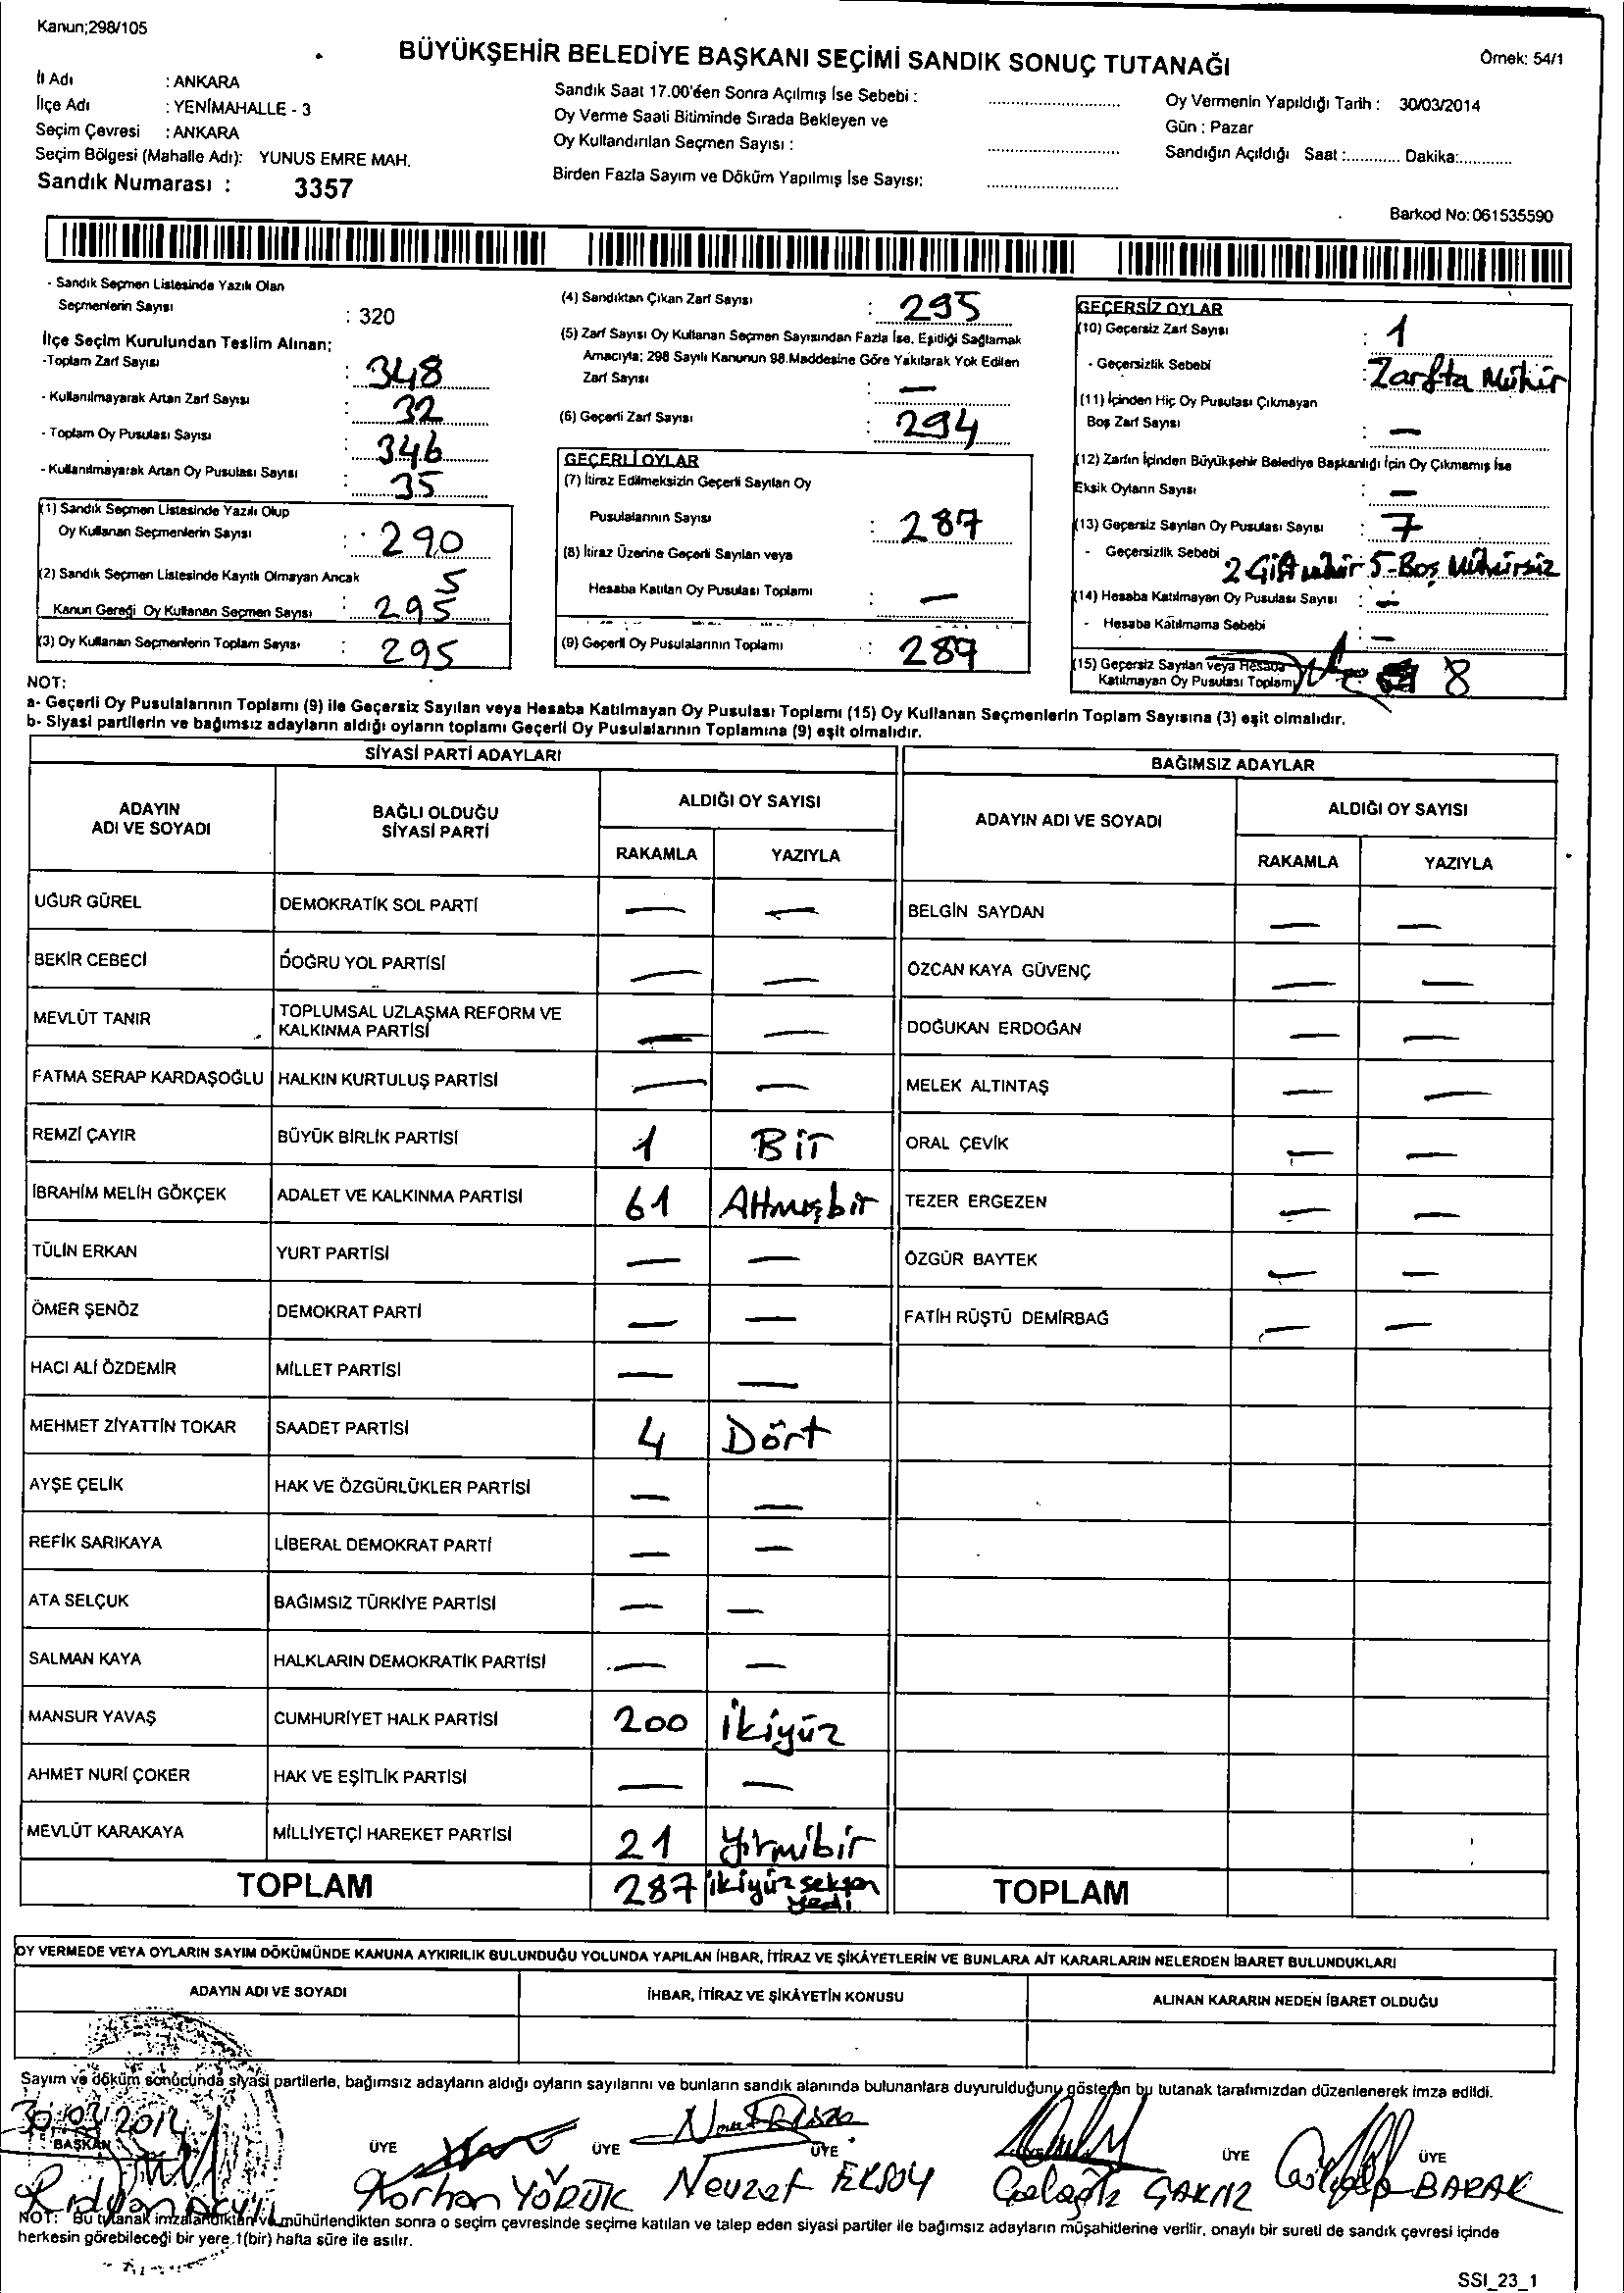 Kanun;298/105
BÜYÜKŞEHİR BELEDİYE BAŞKANI SEÇİMİ SANDIK SONUÇ TUTANAĞI
Örnek: 54/1
İl Adı : ANKARA
İlçe Adı : YENİMAHALLE - 3
Seçim Çevresi : ANKARA
Seçim Bölgesi (Mahalle Adı): YUNUS EMRE MAH.
Sandık Numarası : 3357
Sandık Saat 17.00'den Sonra Açılmış İse Sebebi :
Oy Verme Saati Bitiminde Sırada Bekleyen ve
Oy Kullandırılan Seçmen Sayısı :
Birden Fazla Sayım ve Döküm Yapılmış İse Sayısı:
Oy Vermenin Yapıldığı Tarih : 30/03/2014
Gün : Pazar
Sandığın Açıldığı Saat :............ Dakika:............
Barkod No: 061535590
- Sandık Seçmen Listesinde Yazılı Olan
Seçmenlerin Sayısı : 320
İlçe Seçim Kurulundan Teslim Alınan;
-Toplam Zarf Sayısı : 348
- Kullanılmayarak Artan Zarf Sayısı : 32
- Toplam Oy Pusulası Sayısı : 346
- Kullanılmayarak Artan Oy Pusulası Sayısı : 35
(1) Sandık Seçmen Listesinde Yazılı Olup
Oy Kullanan Seçmenlerin Sayısı : 290
(2) Sandık Seçmen Listesinde Kayıtlı Olmayan Ancak 5
Kanun Gereği Oy Kullanan Seçmen Sayısı : 295
(3) Oy Kullanan Seçmenlerin Toplam Sayısı : 295
(4) Sandıktan Çıkan Zarf Sayısı : 295
(5) Zarf Sayısı Oy Kullanan Seçmen Sayısından Fazla İse, Eşitliği Sağlamak
Amacıyla; 298 Sayılı Kanunun 98.Maddesine Göre Yakılarak Yok Edilen
Zarf Sayısı : —
(6) Geçerli Zarf Sayısı : 294
GEÇERLİ OYLAR
(7) İtiraz Edilmeksizin Geçerli Sayılan Oy
Pusulalarının Sayısı : 287
(8) İtiraz Üzerine Geçerli Sayılan veya
Hesaba Katılan Oy Pusulası Toplamı : —
(9) Geçerli Oy Pusulalarının Toplamı : 287
GEÇERSİZ OYLAR
(10) Geçersiz Zarf Sayısı : 1
- Geçersizlik Sebebi : Zarfta Mühür
(11) İçinden Hiç Oy Pusulası Çıkmayan
Boş Zarf Sayısı : —
(12) Zarfın İçinden Büyükşehir Belediye Başkanlığı İçin Oy Çıkmamış İse
Eksik Oyların Sayısı : —
(13) Geçersiz Sayılan Oy Pusulası Sayısı : 7
- Geçersizlik Sebebi 2 Çift mühür 5-Boş Mühürsüz
(14) Hesaba Katılmayan Oy Pusulası Sayısı : —
- Hesaba Katılmama Sebebi : —
(15) Geçersiz Sayılan veya Hesaba
Katılmayan Oy Pusulası Toplamı 8
NOT:
a- Geçerli Oy Pusulalarının Toplamı (9) ile Geçersiz Sayılan veya Hesaba Katılmayan Oy Pusulası Toplamı (15) Oy Kullanan Seçmenlerin Toplam Sayısına (3) eşit olmalıdır.
b- Siyasi partilerin ve bağımsız adayların aldığı oyların toplamı Geçerli Oy Pusulalarının Toplamına (9) eşit olmalıdır.
SİYASİ PARTİ ADAYLARI
ADAYIN ADI VE SOYADI
BAĞLI OLDUĞU SİYASİ PARTİ
ALDIĞI OY SAYISI
RAKAMLA YAZIYLA
UĞUR GÜREL DEMOKRATİK SOL PARTİ — —
BEKİR CEBECİ DOĞRU YOL PARTİSİ — —
MEVLÜT TANIR TOPLUMSAL UZLAŞMA REFORM VE KALKINMA PARTİSİ — —
FATMA SERAP KARDAŞOĞLU HALKIN KURTULUŞ PARTİSİ — —
REMZİ ÇAYIR BÜYÜK BİRLİK PARTİSİ 1 BİR
İBRAHİM MELİH GÖKÇEK ADALET VE KALKINMA PARTİSİ 61 Altmışbir
TÜLİN ERKAN YURT PARTİSİ — —
ÖMER ŞENÖZ DEMOKRAT PARTİ — —
HACI ALİ ÖZDEMİR MİLLET PARTİSİ — —
MEHMET ZİYATTİN TOKAR SAADET PARTİSİ 4 Dört
AYŞE ÇELİK HAK VE ÖZGÜRLÜKLER PARTİSİ — —
REFİK SARIKAYA LİBERAL DEMOKRAT PARTİ — —
ATA SELÇUK BAĞIMSIZ TÜRKİYE PARTİSİ — —
SALMAN KAYA HALKLARIN DEMOKRATİK PARTİSİ — —
MANSUR YAVAŞ CUMHURİYET HALK PARTİSİ 200 İkiyüz
AHMET NURİ ÇOKER HAK VE EŞİTLİK PARTİSİ — —
MEVLÜT KARAKAYA MİLLİYETÇİ HAREKET PARTİSİ 21 Yirmibir
TOPLAM 287 ikiyüz seksen yedi
BAĞIMSIZ ADAYLAR
ADAYIN ADI VE SOYADI
ALDIĞI OY SAYISI
RAKAMLA YAZIYLA
BELGİN SAYDAN — —
ÖZCAN KAYA GÜVENÇ — —
DOĞUKAN ERDOĞAN — —
MELEK ALTINTAŞ — —
ORAL ÇEVİK — —
TEZER ERGEZEN — —
ÖZGÜR BAYTEK — —
FATİH RÜŞTÜ DEMİRBAĞ — —
TOPLAM
OY VERMEDE VEYA OYLARIN SAYIM DÖKÜMÜNDE KANUNA AYKIRILIK BULUNDUĞU YOLUNDA YAPILAN İHBAR, İTİRAZ VE ŞİKÂYETLERİN VE BUNLARA AİT KARARLARIN NELERDEN İBARET BULUNDUKLARI
ADAYIN ADI VE SOYADI
İHBAR, İTİRAZ VE ŞİKÂYETİN KONUSU
ALINAN KARARIN NEDEN İBARET OLDUĞU
Sayım ve döküm sonucunda siyasi partilerle, bağımsız adayların aldığı oyların sayılarını ve bunların sandık alanında bulunanlara duyurulduğunu gösteren bu tutanak tarafımızdan düzenlenerek imza edildi.
30/03/2014
BAŞKAN ÜYE ÜYE ÜYE ÜYE ÜYE
Korhan YÖRÜK Nevzat BARAK
NOT: Bu tutanak imzalandıktan ve mühürlendikten sonra o seçim çevresinde seçime katılan ve talep eden siyasi partiler ile bağımsız adayların müşahitlerine verilir, onaylı bir sureti de sandık çevresi içinde
herkesin görebileceği bir yere 1(bir) hafta süre ile asılır.
SSI_23_1